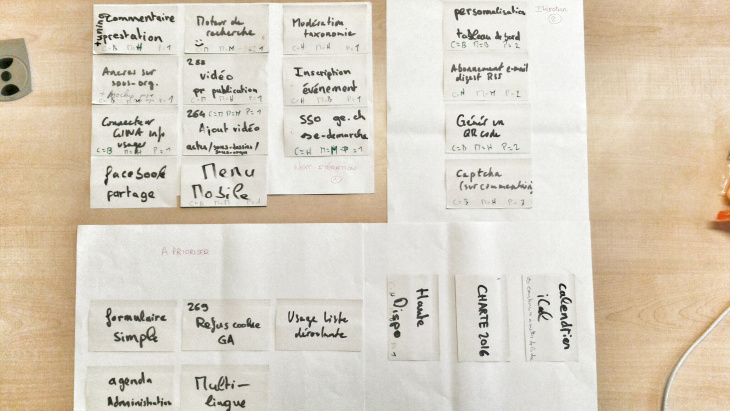 tuning commentaire
prestation
C=B M=H P=1
Moteur de
recherche
Modération
taxonomie
C=H M=B P=1
Ancres sur
sous-org.
288
vidéo
pr publication
Inscription
événement
Connecteur
GINA info
usagers
C=B M=H P=1
264 C=M M=H P=1
Ajout vidéo
SSO ge.ch
ese-demarche
C=H M=M P=1
facebook
partage
Menu
Mobile
NEXT ITERATION
personnalisation
tableau de bord
C=B M=B P=2
Iteration
2
Abonnement e-mail
digest RSS
C=H M=H P=2
Génér un
QR code
P=2
Captcha
(sur commentaire)
C=B M=B
A PRIORISER
formulaire
simple
269
Refus cookie
GA
Usage liste
déroulante
agenda
Administration
Multi-
lingue
Haute
Dispo
CHARTE 2016
calendrier
iCal